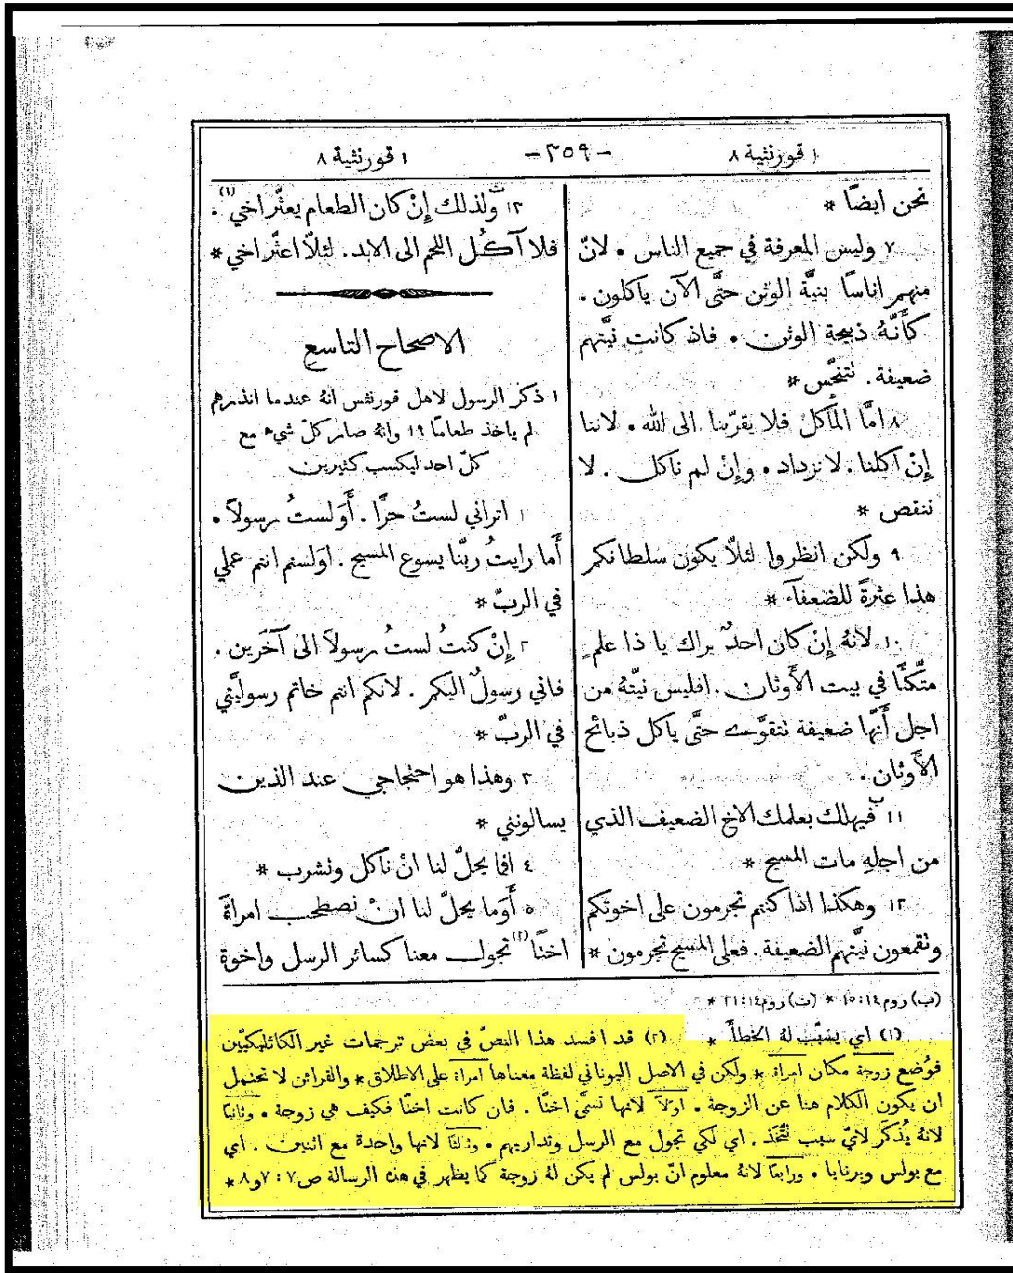 ١ قورنثية ٨
- ٢٥٩ -
١ قورنثية ٨
نحن ايضًا *
٧ وليس المعرفة في جميع الناس • لانّ
منهم اناسًا بنيّة الوثن حتّى الآن ياكلون •
كأنّهُ ذبيحة الوثن • فاذ كانت نيّتهم
ضعيفة . تتنجّس *
٨ امّا المأكل فلا يقرّبنا الى الله • لاننا
إنْ اكلنا . لا نزداد • وإنْ لم ناكل . لا
ننقص *
٩ ولكن انظروا لئلّا يكون سلطانكم
هذا عثرةً للضعفآء *
١٠ لانهُ إنْ كان احدٌ يراك يا ذا علمٍ
متّكئًا في بيت الأوثان . افليس نيّتهُ من
اجل أنّها ضعيفة تتقوّى حتّى ياكل ذبائح
الأوثان .
١١ ب فيهلك بعلمك الاخ الضعيف الذي
من اجلهِ مات المسيح *
١٢ وهكذا اذا كنتم تجرمون على اخوتكم
وتقمعون نيّتهم الضعيفة . فعلى المسيح تجرمون *
١٣ ت ولذلك إنْ كان الطعام يعثّر اخي (١) .
فلا آكُل اللحم الى الابد . لئلّا اعثّر اخي *
الاصحاح التاسع
١ ذكر الرسول لاهل قورنثس انهُ عندما انذرهم
لم ياخذ طعامًا ١٩ وانهُ صار كلّ شيء مع
كلّ احد ليكسب كثيرين
١ اتراني لستُ حرًّا . أَوَلستُ رسولاً •
أما رايتُ ربّنا يسوع المسيح . اوَلستم انتم عملي
في الربّ *
٢ إنْ كنتُ لستُ رسولاً الى آخَرين .
فاني رسولٌ اليكم . لانكم انتم خاتم رسوليّتي
في الربّ *
٣ وهذا هو احتجاجي عند الذين
يسالونني *
٤ افما يحلّ لنا انْ ناكل ونشرب *
٥ أَوَما يحلّ لنا انْ نصطحب امراةً
اختًا (٢) تجول معنا كسائر الرسل واخوة
(ب) روم ١٤ : ١٥ * (ت) روم ١٤ : ٢١ *
(١) اي يسبّب لهُ الخطأ * (٢) قد افسد هذا النصّ في بعض ترجمات غير الكاثليكيّين
فوُضع زوجة مكان امراة * ولكن في الاصل اليوناني لفظة معناها امراة على الاطلاق * والقرائن لا تحتمل
ان يكون الكلام هنا عن الزوجة • اولاً لانها تسمّى اختًا . فان كانت اختًا فكيف هي زوجة • وثانيًا
لانهُ يُذكَر لايّ سبب تُتّخَذ . اي لكي تجول مع الرسل وتداريهم • وثالثًا لانها واحدة مع اثنين . اي
مع بولس وبرنابا • ورابعًا لانهُ معلوم انّ بولس لم يكن لهُ زوجة كما يظهر في هذه الرسالة ص ٧ : ٧ و ٨ *